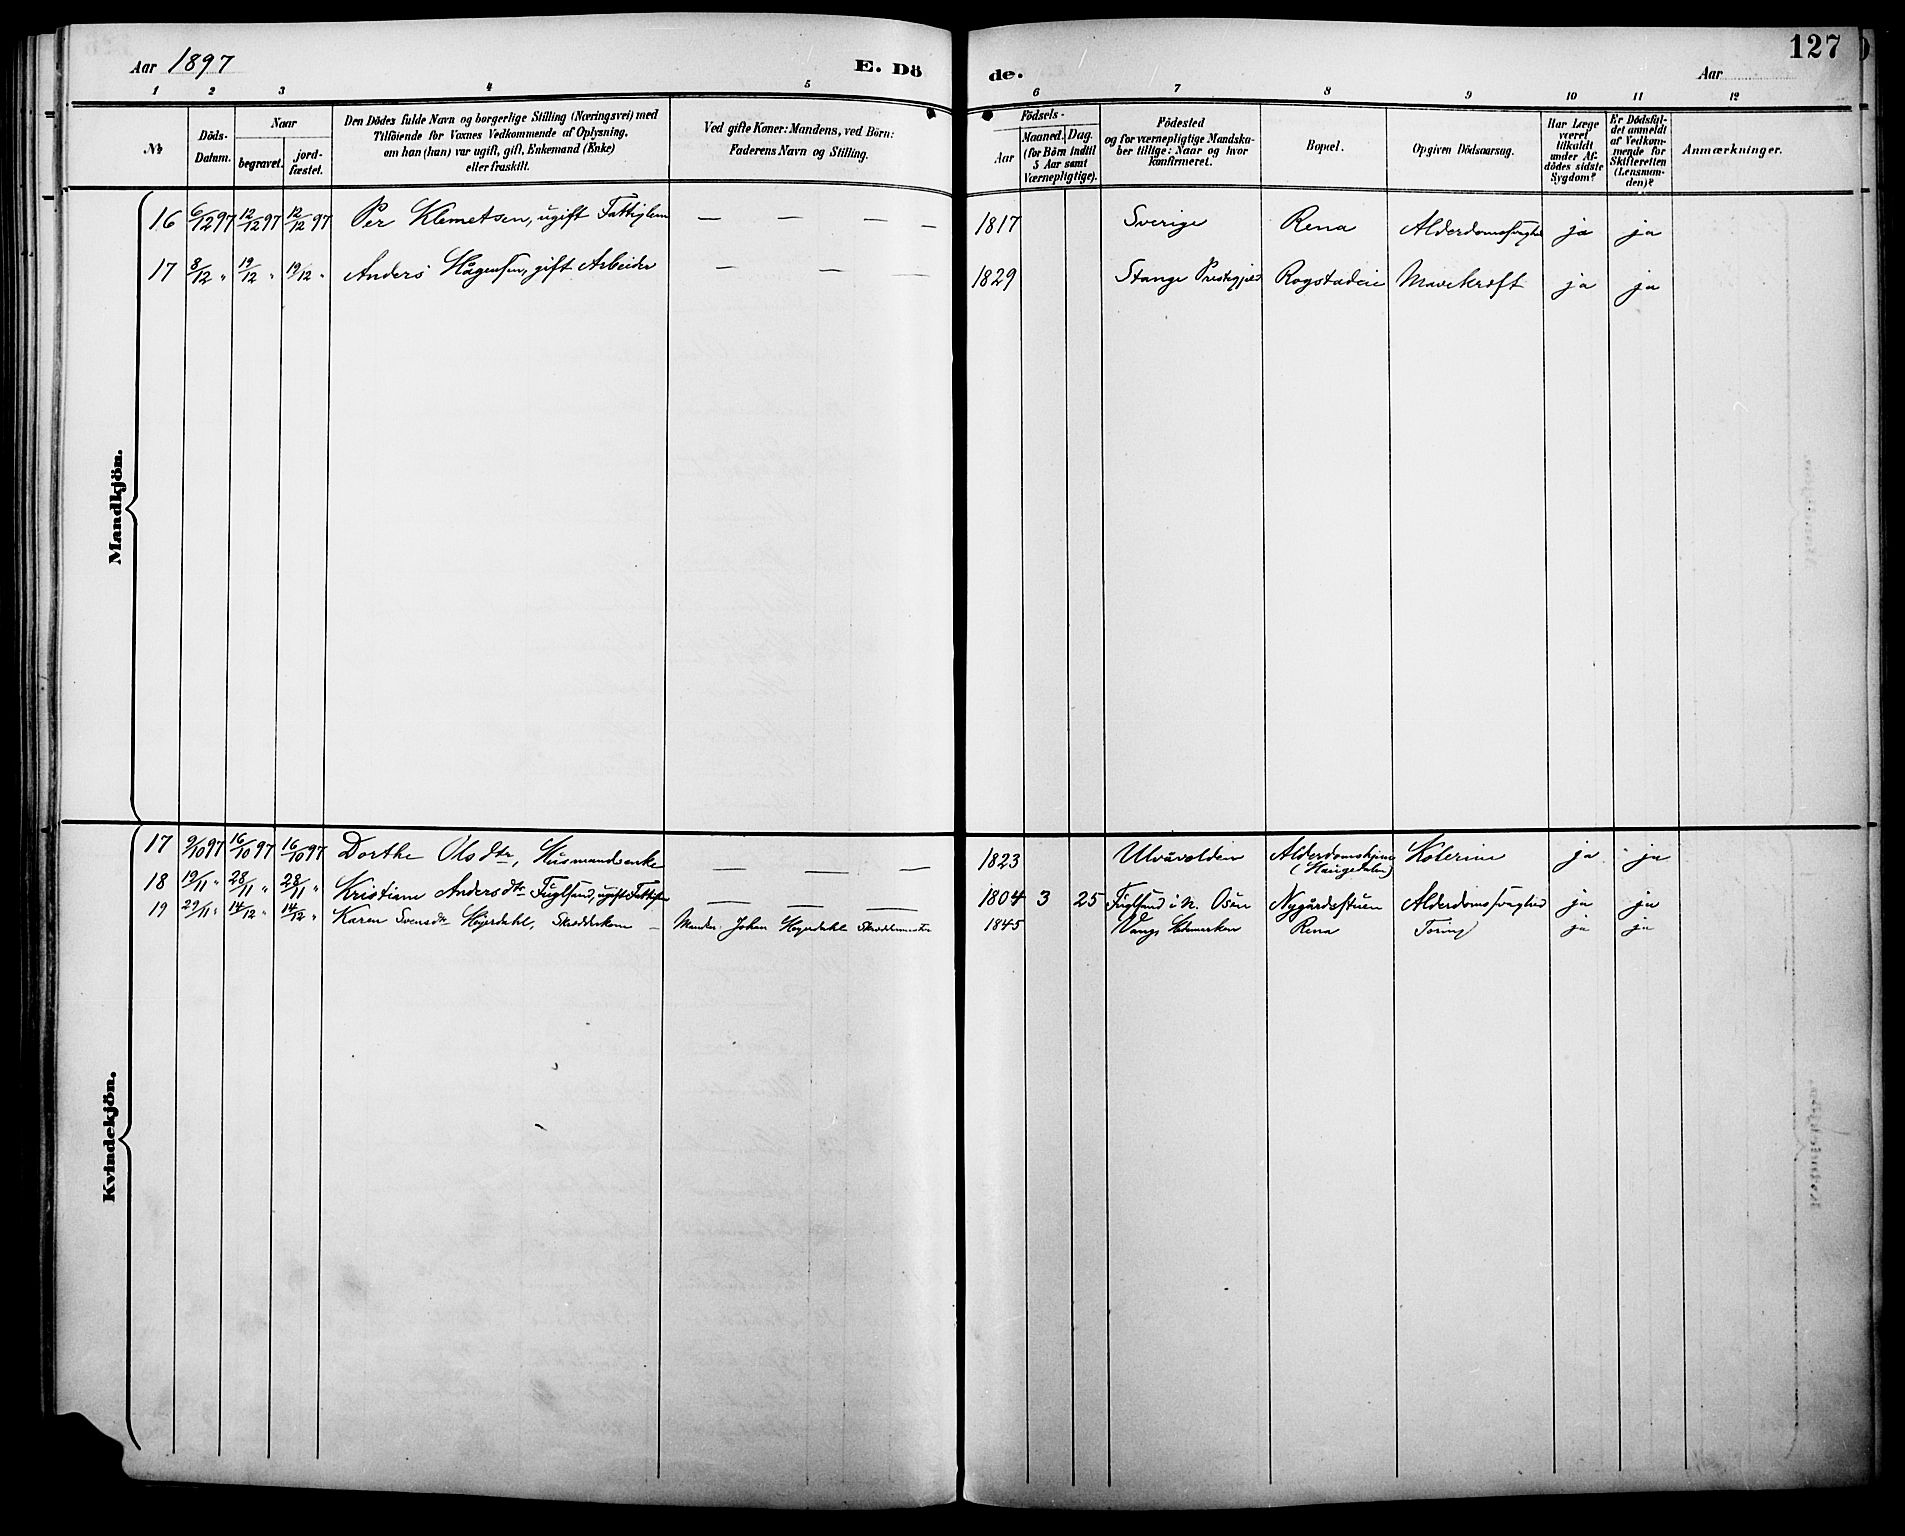 Aar 1897
E. Dö
de.
Aar
127
1 2 3 4 5 6 7 8 9 10 11 12
№
Döds-
Datum.
Naar
begravet.
jord-
fæstet.
Den Dödes fulde Navn og borgerlige Stilling (Næringsvei) med
Tilföiende for Voxnes Vedkommende af Oplysning,
om han (hun) var ugift, gift, Enkemand (Enke)
eller fraskilt.
Ved gifte Koner: Mandens, ved Börn:
Faderens Navn og Stilling.
Födsels-
Aar
Maaned. Dag.
(for Börn indtil
5 Aar samt
Værnepligtige).
Födested
og for værnepligtige Mandska-
ber tillige: Naar og hvor
konfirmeret.
Bopæl.
Opgiven Dödsaarsag.
Har Læge
været
tilkaldt
under Af-
dödes sidste
Sygdom?
Er Dödsfal-
det anmeldt
af Vedkom-
mende for
Skifteretten
(Lensman-
den)?
Anmærkninger.
Mandkjön.
16 6/12 97 12/12 97 12/12 97 Per Klemetsen, ugift Fattiglem — — — — 1817 Sverige Rena Alderdomssvaghed ja ja
17 8/12 " 19/12 " 19/12 " Anders Hågensen, gift Arbeider — — — 1829 Stange Prestegjæld Rogstadeie Mavekræft ja ja
Kvindekjön.
17 9/10 97 16/10 97 16/10 97 Dorthe Olsdtr, Husmandsenke — — — 1823 Ulvåvolden Alderdomshjem Kolerine ja ja
(Haugedalen)
18 19/11 " 28/11 " 28/11 " Kristiane Andersdtr Fuglsund, ugift Fattiglem — — — 1804 3 25 Fuglsund i N. Osen Nygårdsstuen Alderdomssvaghed ja ja
19 29/11 " 14/12 " 14/12 " Karen Svensdtr Höyerdahl, Skrædderkone — Manden: Johan Höyerdahl Skræddermester 1845 Vangs Rena Tæring ja ja